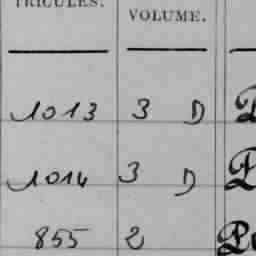 TRICULES. VOLUME.
1013 3 D
1014 3 D
855 2